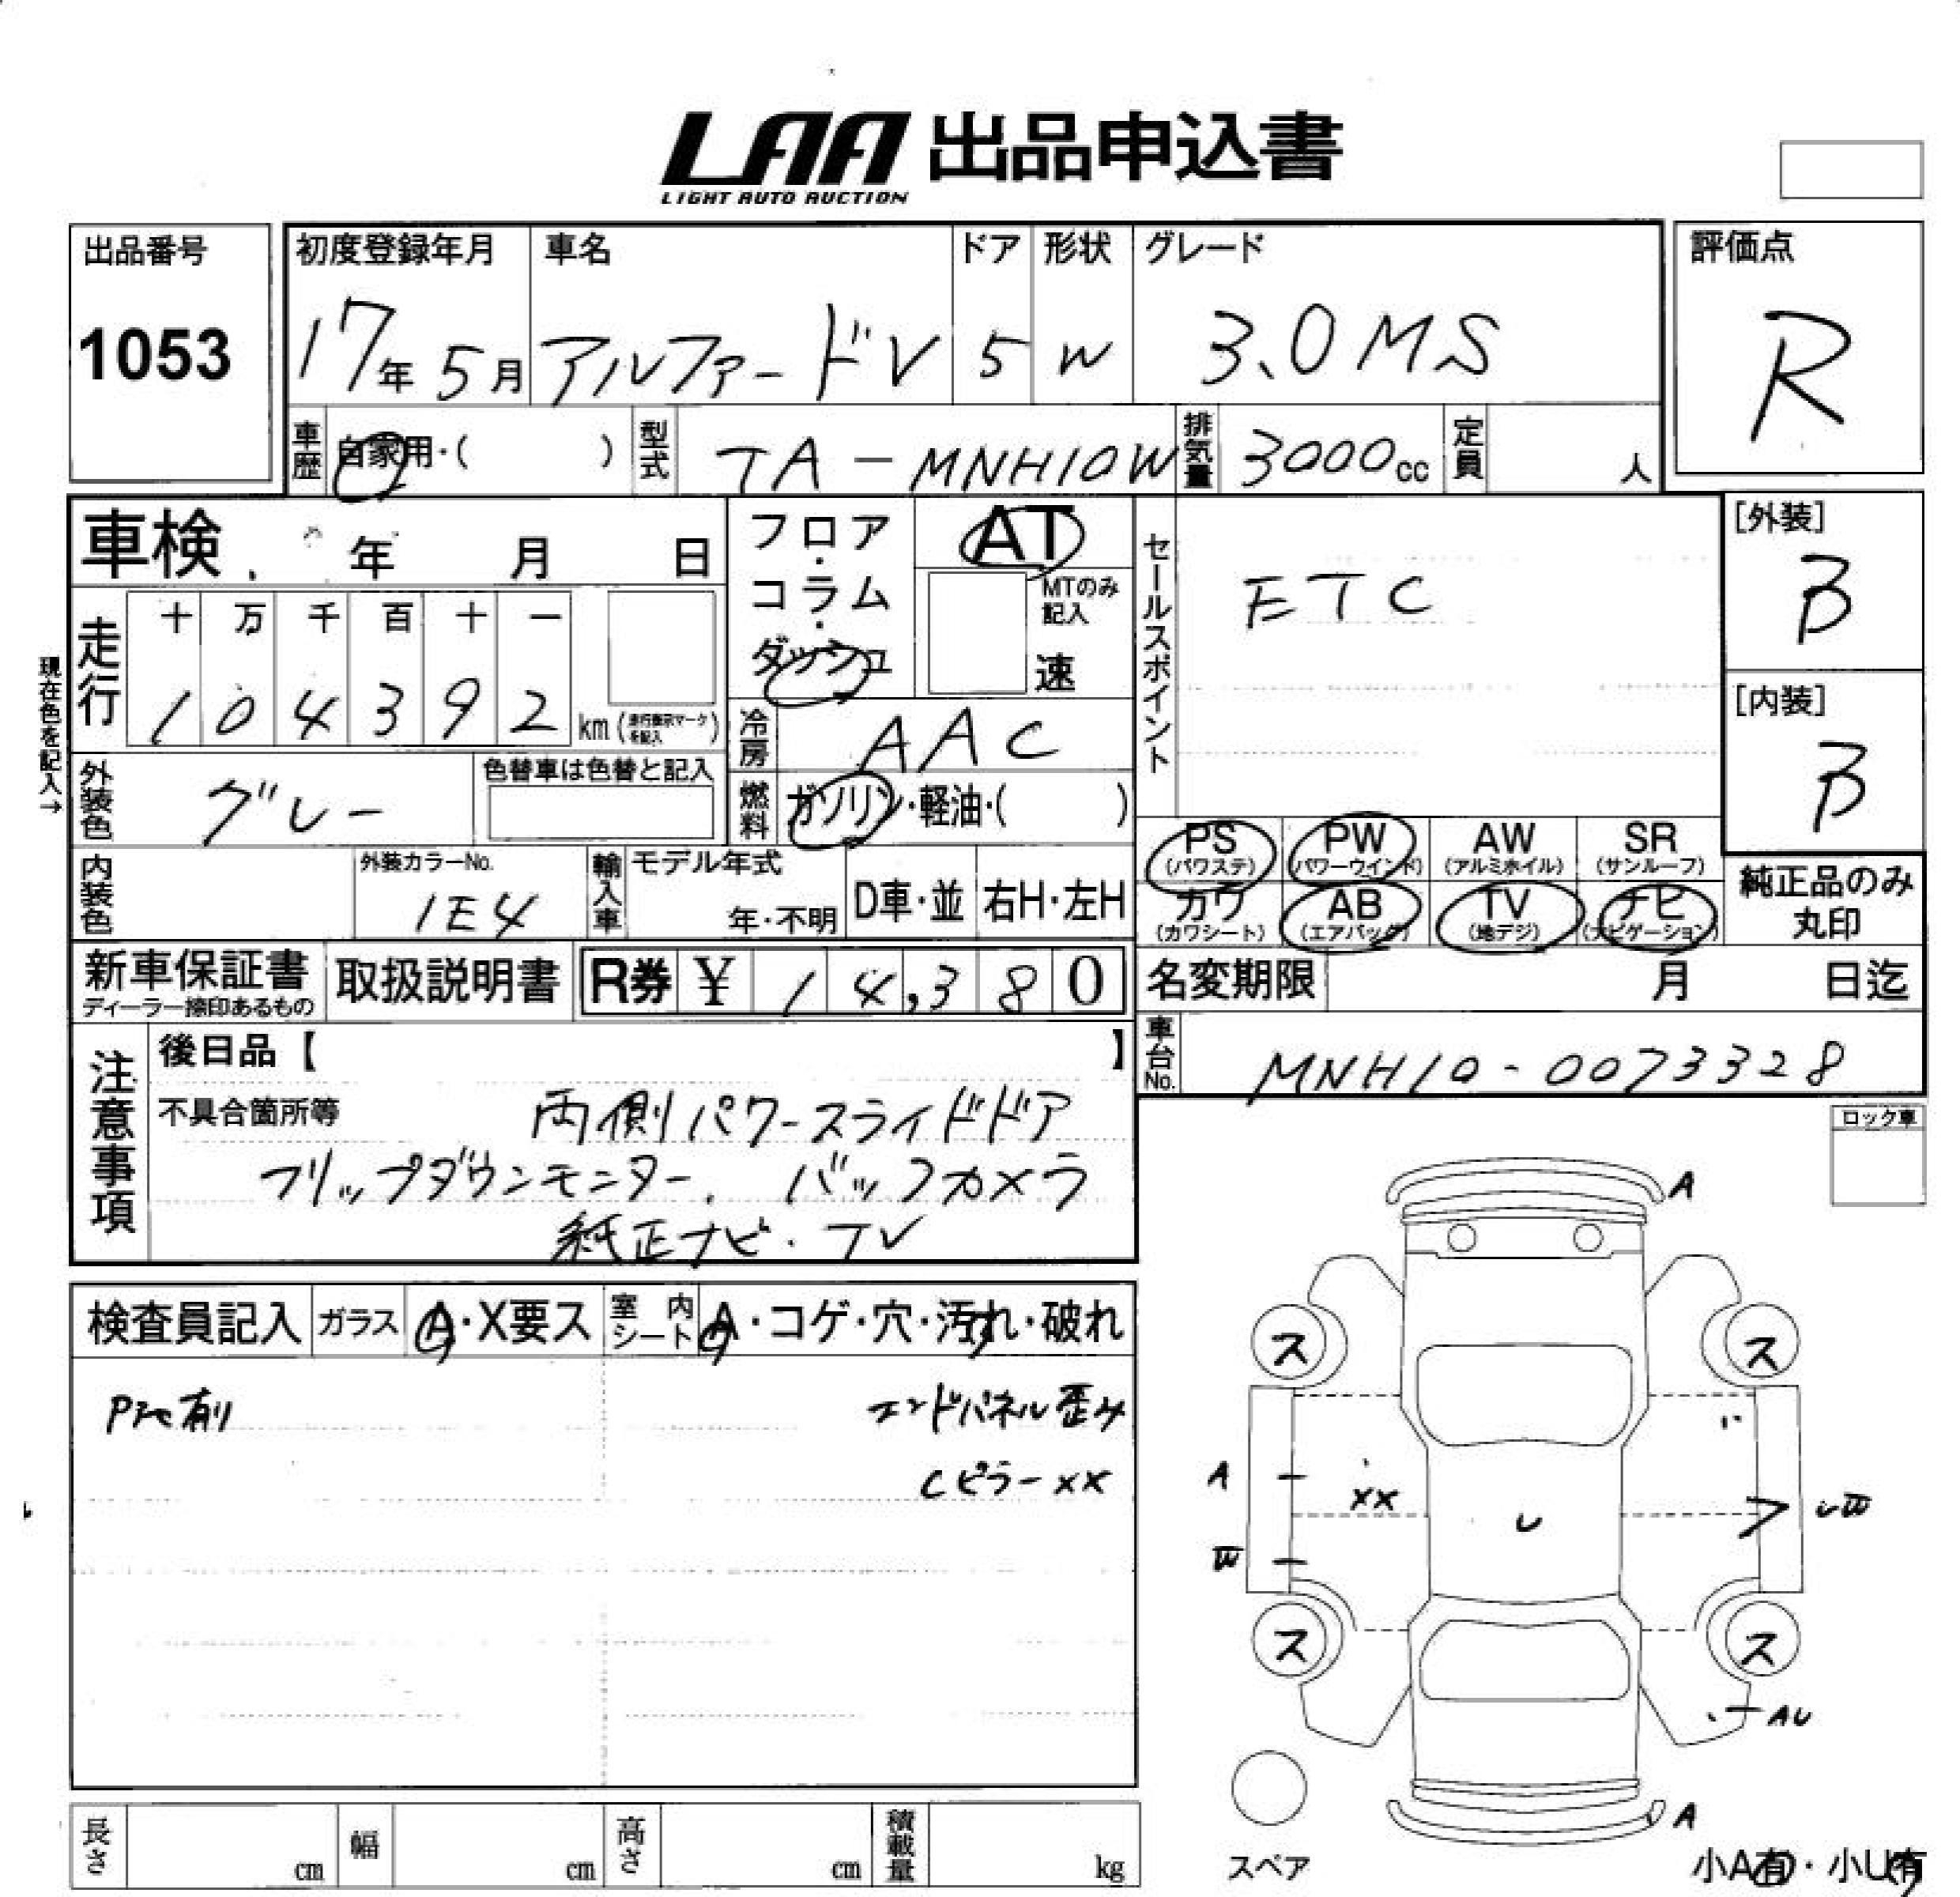 LAA 出品申込書
LIGHT AUTO AUCTION
出品番号
1053
初度登録年月
17年 5月
車名
アルファードV
ドア
5
形状
W
グレード
3.0MS
評価点
R
車歴
自家用・( )
型式
TA-MNH10W
排気量
3000cc
定員
人
車検 年 月 日
現在色を記入→
走行
十 万 千 百 十 一
1 0 4 3 9 2 km (走行表示マークを記入)
フロア・コラム・ダッシュ
AT
MTのみ記入
速
冷房
AAC
燃料
ガソリン・軽油・( )
外装色
グレー
色替車は色替と記入
内装色
外装カラーNo.
1E4
輸入車
モデル年式
年・不明
D車・並
右H・左H
セールスポイント
ETC
[外装]
B
[内装]
B
PS (パワステ)
PW (パワーウインド)
AW (アルミホイル)
SR (サンルーフ)
カワ (カワシート)
AB (エアバッグ)
TV (地デジ)
ナビ (ナビゲーション)
純正品のみ
丸印
新車保証書
ディーラー捺印あるもの
取扱説明書
R券 ¥ 14,380
名変期限 月 日迄
車台No.
MNH10-0073328
注意事項
後日品【 】
不具合箇所等
両側パワースライドドア
フリップダウンモニター. バックカメラ
純正ナビ・TV
ロック車
検査員記入
ガラス
A・X要ス
室内シート
A・コゲ・穴・汚れ・破れ
エンドパネル歪み
Cピラーxx
A
ス
ス
A
xx
U
W
ス
ス
AU
A
スペア
小A有・小U有
長さ cm
幅 cm
高さ cm
積載量 kg